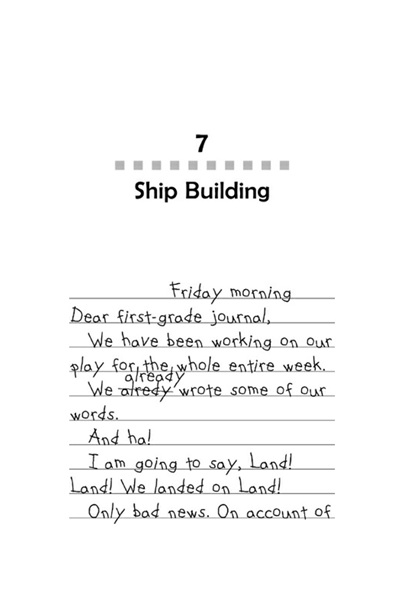 7
Ship Building
Friday morning
Dear first-grade journal,
We have been working on our
play for the whole entire week.
already
We alredy wrote some of our
words.
And ha!
I am going to say, Land!
Land! We landed on Land!
Only bad news. On account of